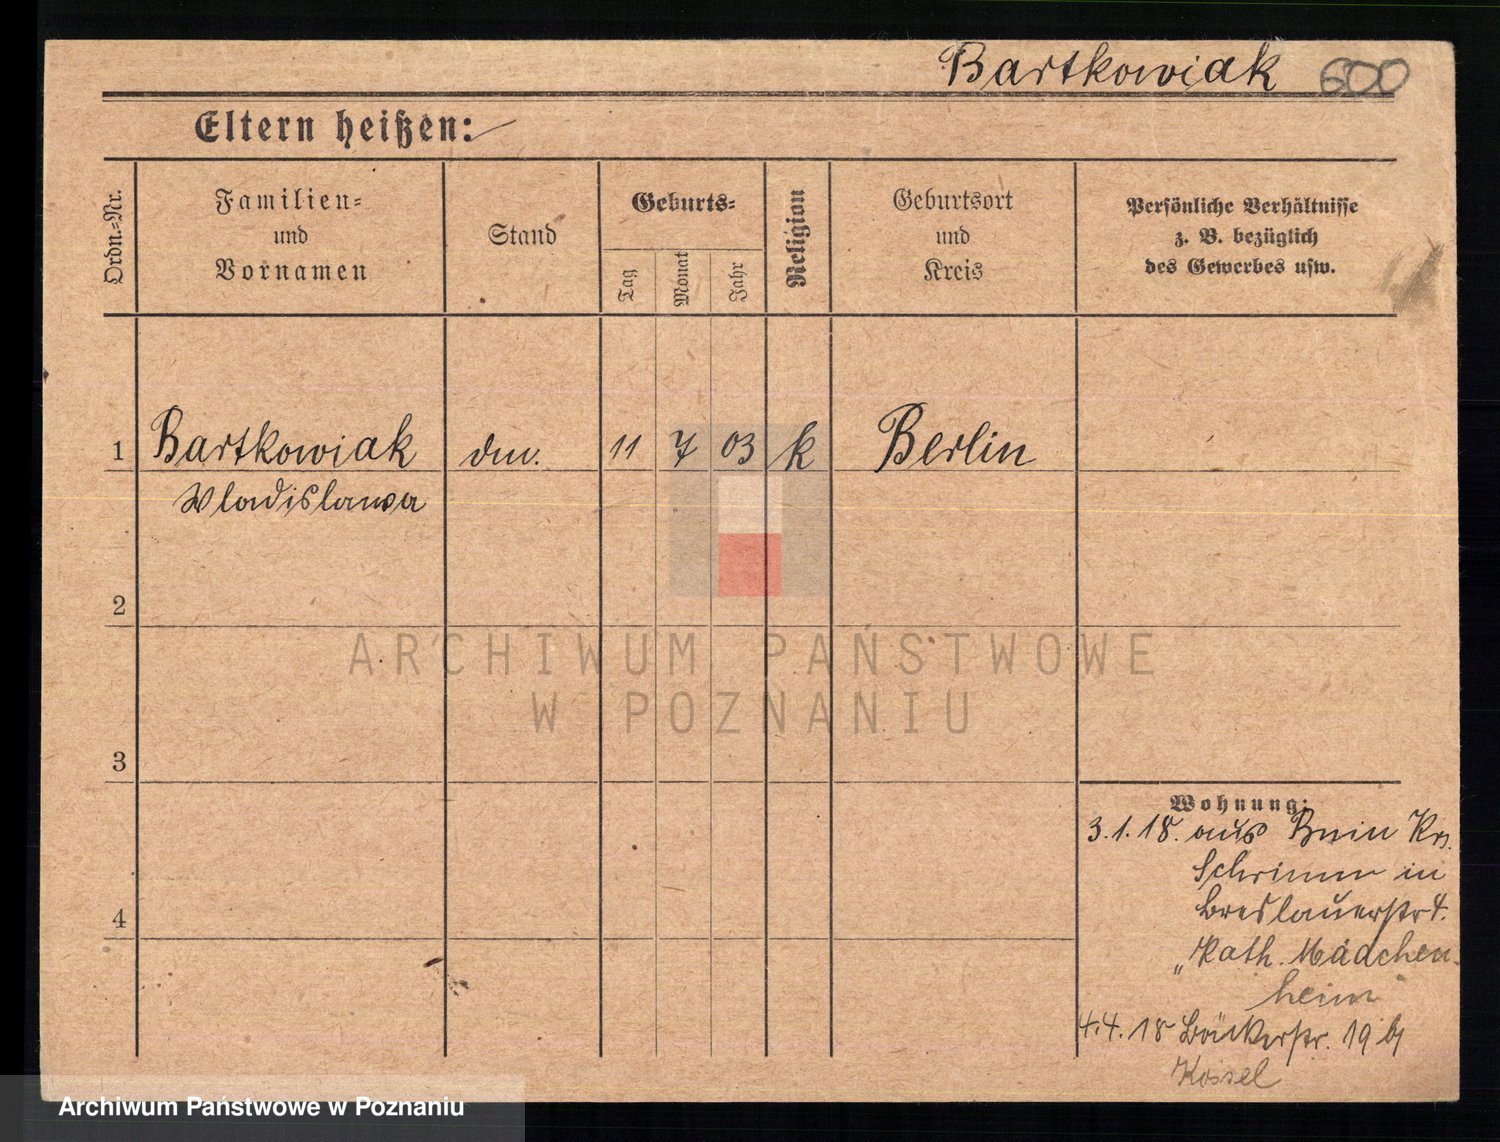 Bartkowiak 600
Eltern heißen:
Ordn.=Nr.
Familien=
und
Vornamen
Stand
Geburts=
Tag
Monat
Jahr
Religion
Geburtsort
und
Kreis
Persönliche Verhältnisse
z. B. bezüglich
des Gewerbes usw.
1 Bartkowiak 11 7 03 k Berlin
Wladislawa
2
3
4
Wohnung:
3.1.18. aus Bnin Krs.
Schrimm in
Breslauerstr 4.
„Kath. Mädchen-
heim"
4.4.18 Bäckerstr. 19 b/
Kossel
ARCHIWUM PAŃSTWOWE
W POZNANIU
Archiwum Państwowe w Poznaniu